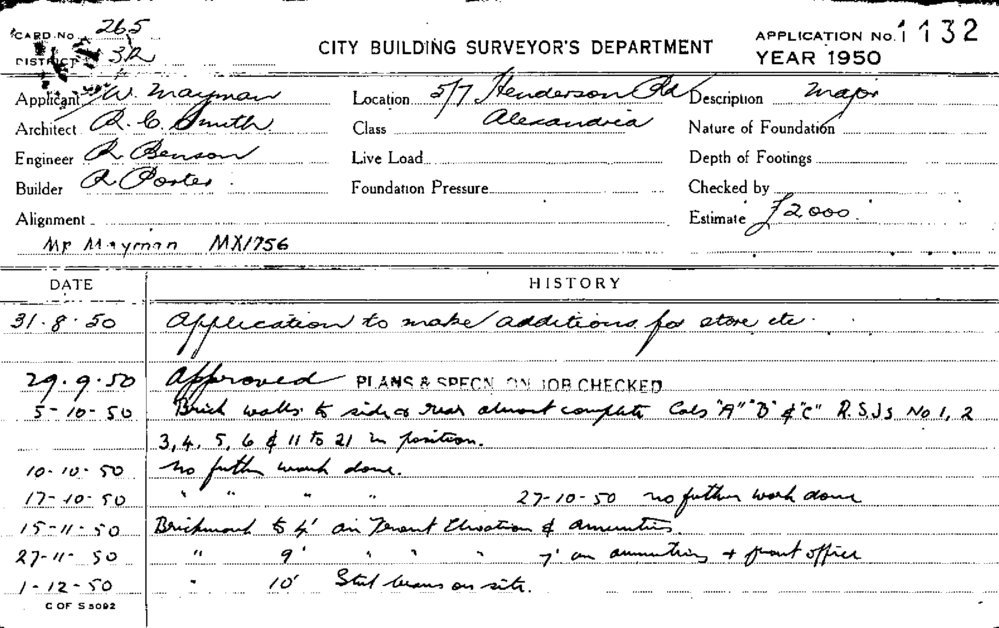 CARD No. 265
CITY BUILDING SURVEYOR'S DEPARTMENT
APPLICATION No. 1132
DISTRICT 32
YEAR 1950
Applicant W. Mayman Location 5/7 Henderson Rd Description Major
Architect R. C. Smith Class Alexandria Nature of Foundation
Engineer R Benson Live Load Depth of Footings
Builder R Porter Foundation Pressure Checked by
Alignment Estimate £2000
Mr Mayman MX1756
DATE HISTORY
31.8.50 Application to make additions for store etc.
29.9.50 Approved PLANS & SPECN. ON JOB CHECKED
5-10-50 Brick walls to side & rear almost complete Cols "A" "B" & "C" R.S.Js No 1, 2
3, 4, 5, 6 & 11 to 21 in position.
10-10-50 no further work done.
17-10-50 " " " " 27-10-50 no further work done
15-11-50 Brickwork to 4' on Elevation & amenities
27-11-50 " 9' " " " 7' on amenities + front office
1-12-50 " 10' Steel beams on site.
C OF S 5092